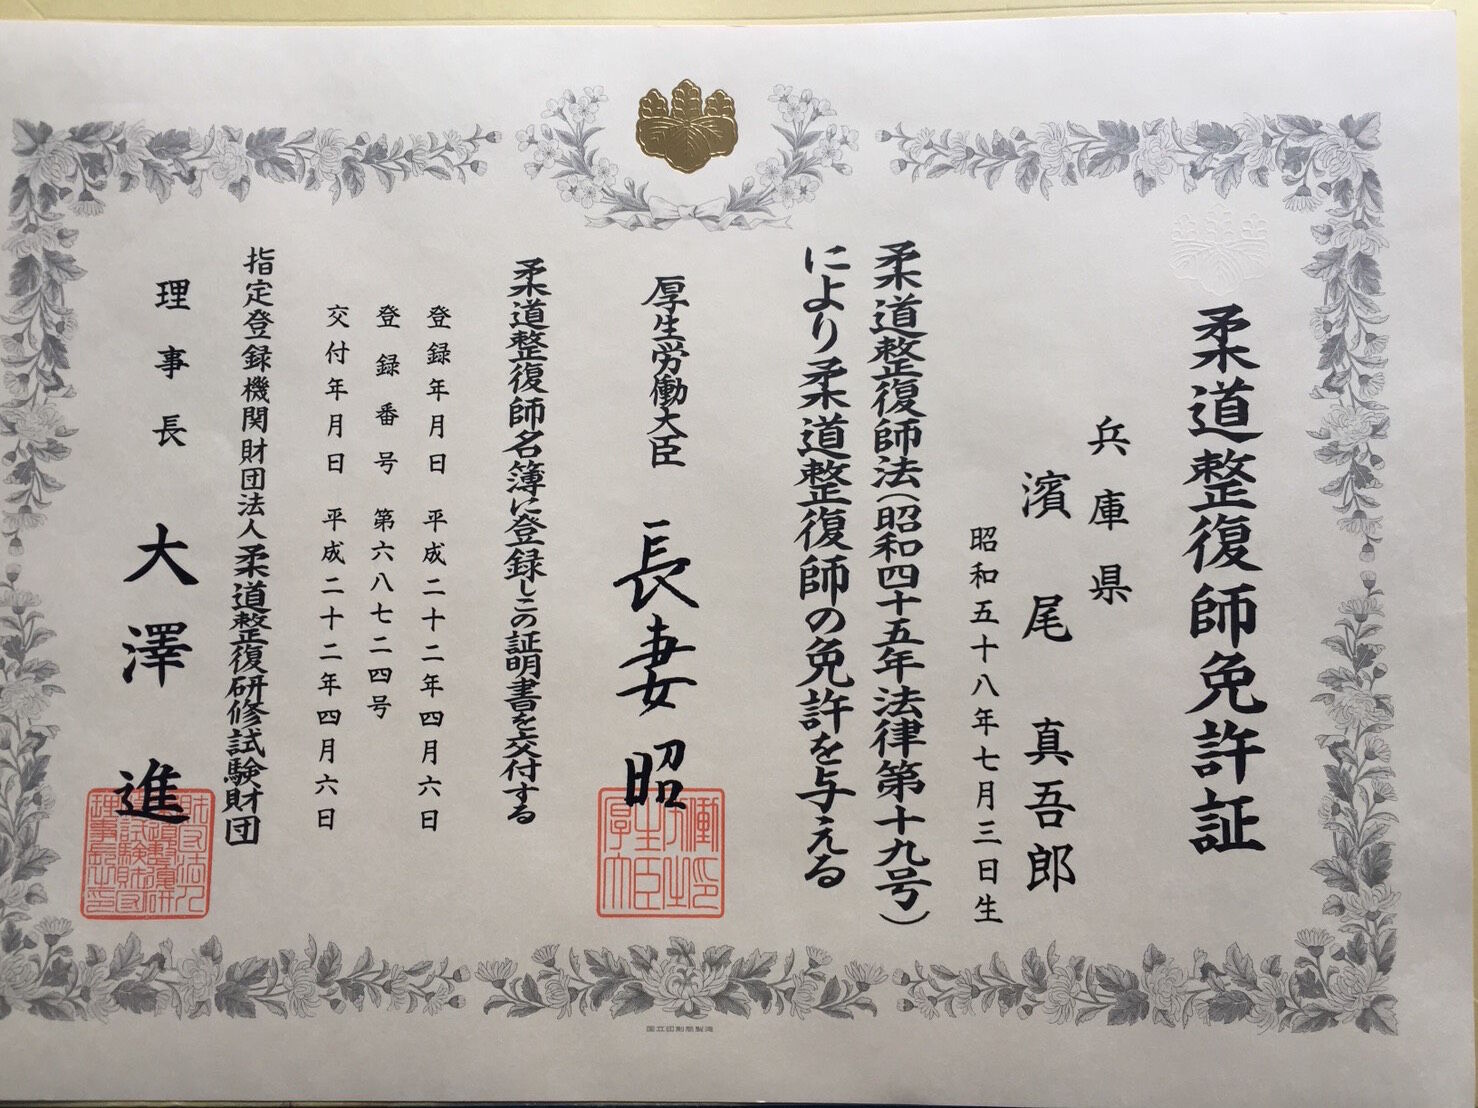 柔道整復師免許証
兵庫県
濱尾 真吾郎
昭和五十八年七月三日生
柔道整復師法(昭和四十五年法律第十九号)
により柔道整復師の免許を与える
厚生労働大臣 長妻昭
柔道整復師名簿に登録しこの証明書を交付する
登録年月日 平成二十二年四月六日
登録番号 第六八七二四号
交付年月日 平成二十二年四月六日
指定登録機関財団法人柔道整復研修試験財団
理事長 大澤進
国立印刷局製造